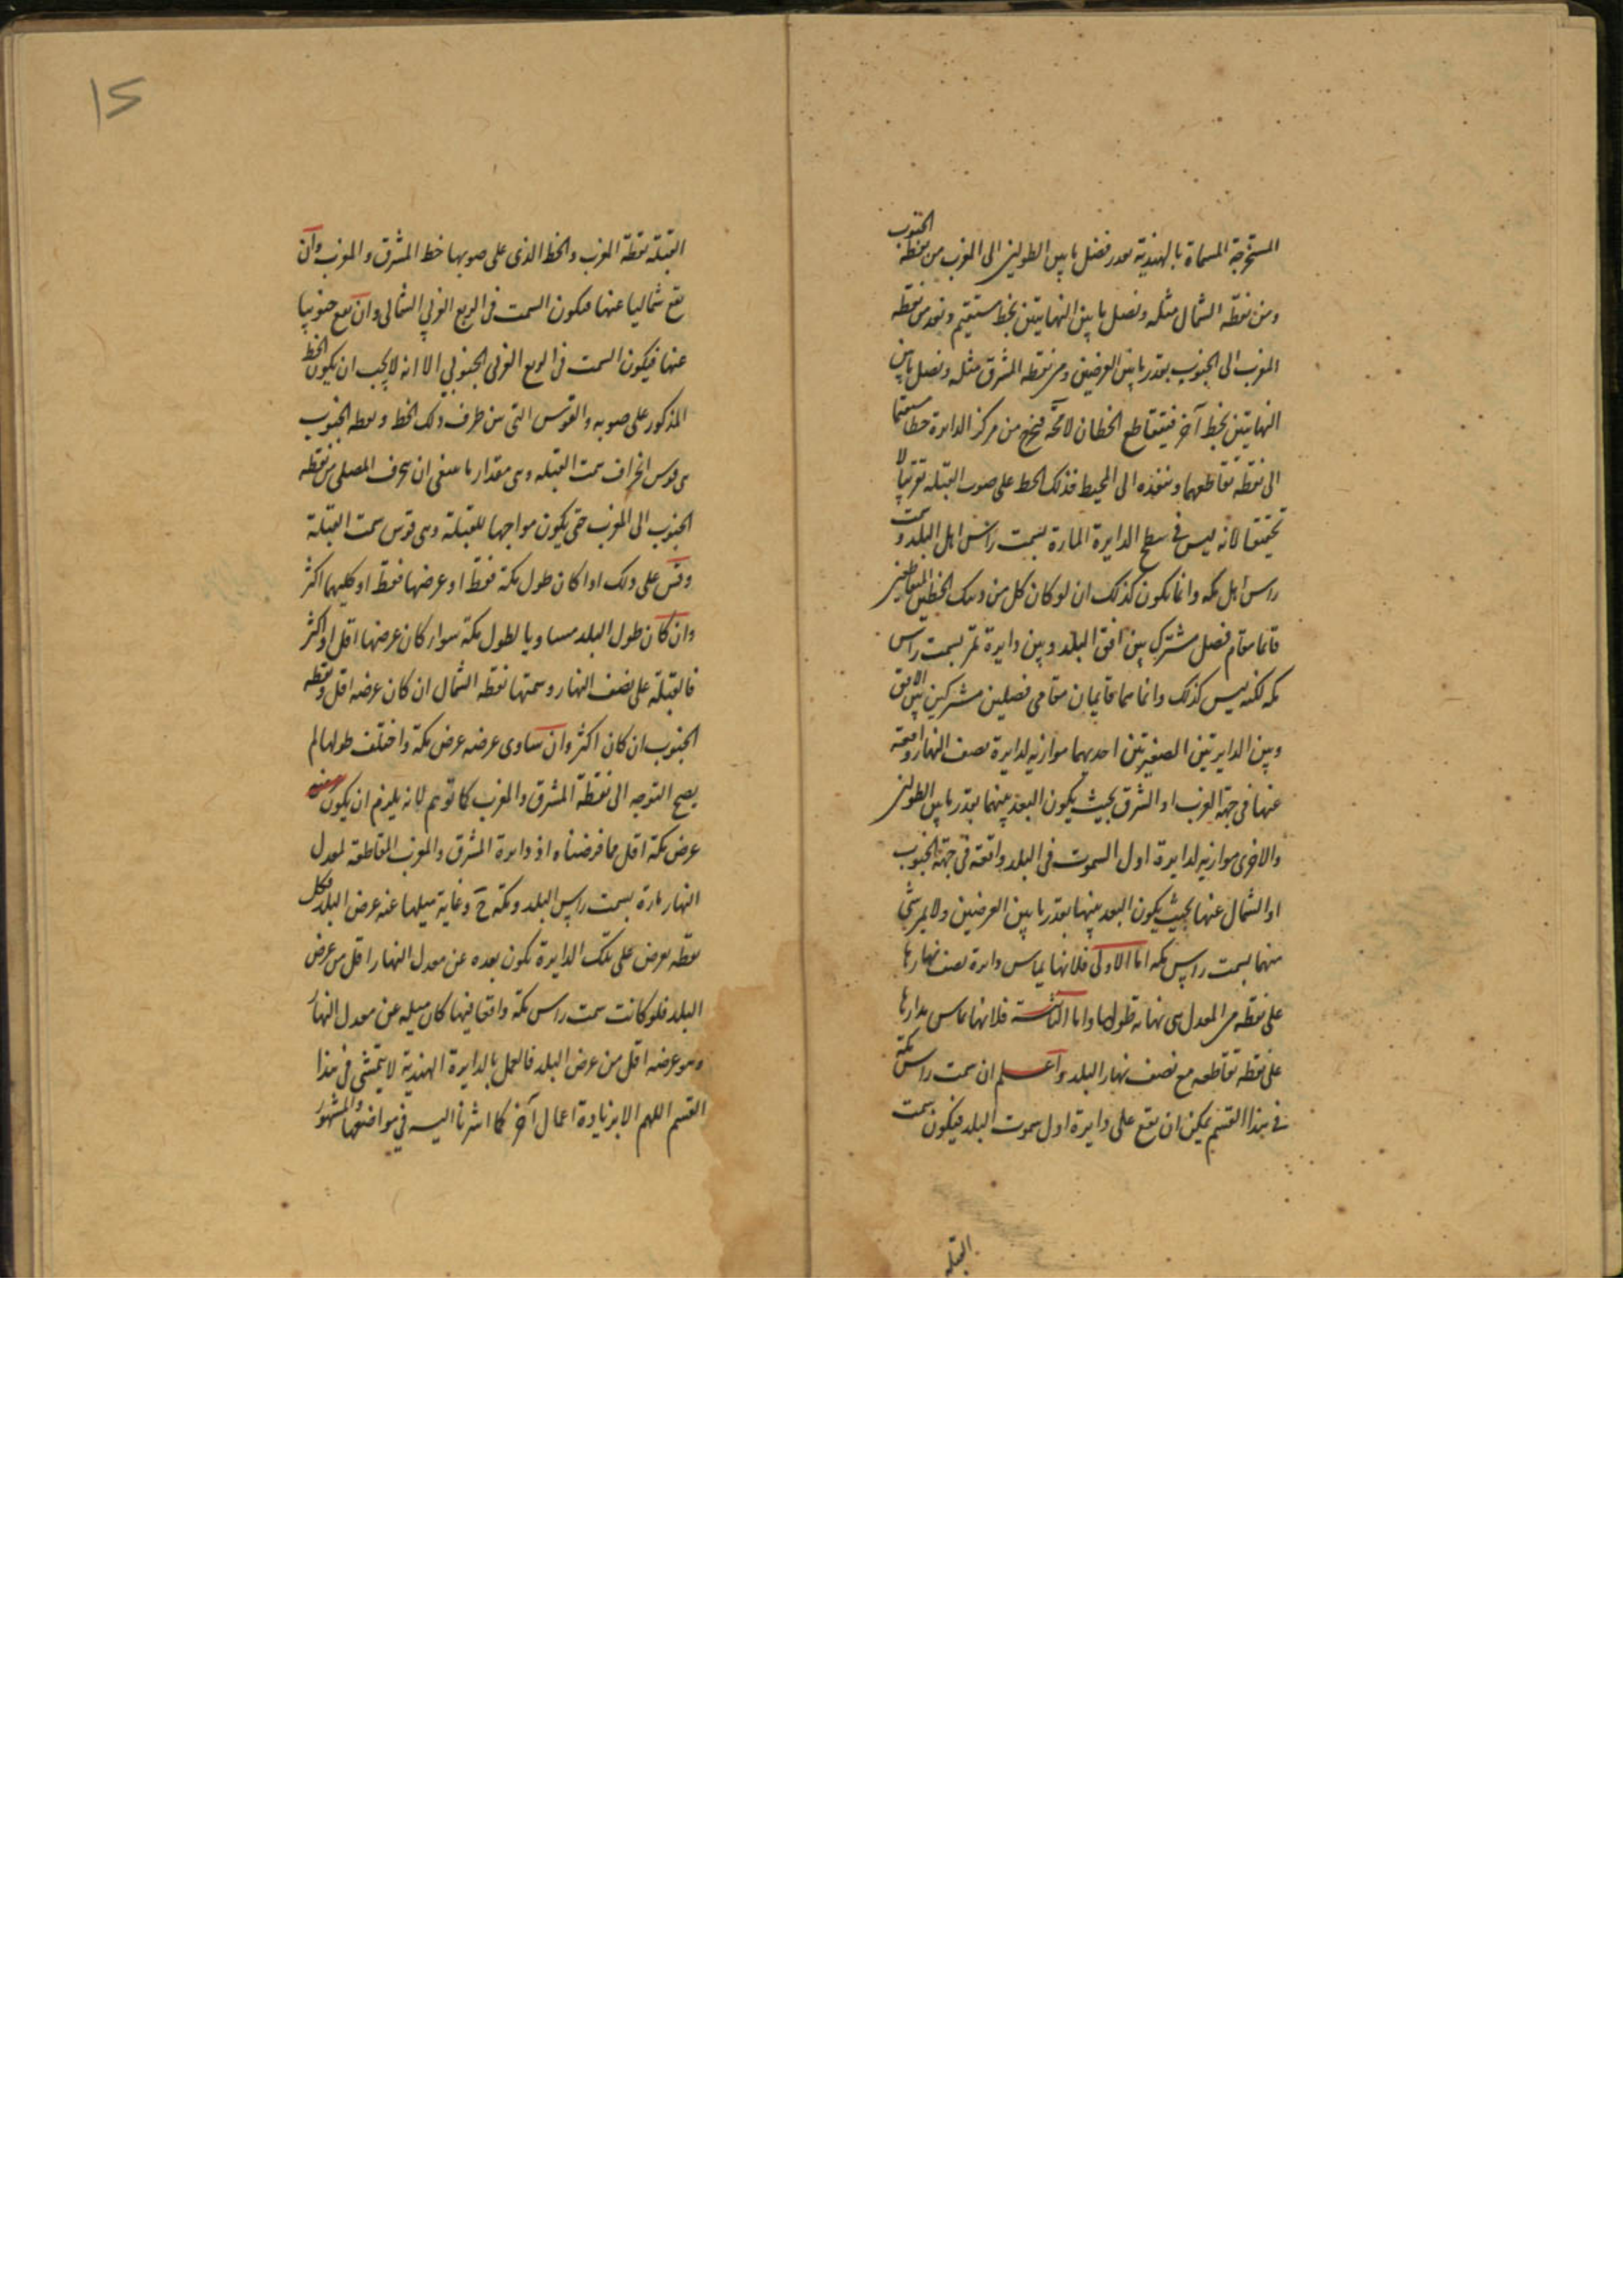 المستخرجة المسماة بالهندية بقدر فضل ما بين الطولين الى المغرب من نقطة الجنوب
ومن نقطة الشمال مثله ونصل ما بين النهايتين بخط مستقيم ونعد من نقطة
المغرب الى الجنوب بقدر ما بين العرضين ومن نقطة المشرق مثله ونصل ما بين
النهايتين بخط آخر فيتقاطع الخطان لا محة فنخرج من مركز الدايرة خطا مستقيما
الى نقطة تقاطعهما وننفذه الى المحيط فذلك الخط على صوب القبلة تقريبا لا
تحقيقا لانه ليس في سطح الدايرة المارة بسمت راس اهل البلد وسمت
راس اهل مكه وانما يكون كذلك ان لو كان كل من ذينك الخطين المتقاطعين
قائما مقام فصل مشترك بين افق البلد وبين دايرة تمر بسمت راس
مكه لكنه ليس كذلك وانما هما قايمان مقامى فصلين مشتركين بين الافق
وبين الدايرتين الصغيرتين احديهما موازيه لدايرة نصف النهار واقعة
عنها في جهة الغرب او الشرق بحيث يكون البعد بينهما بقدر ما بين الطولين
والاخرى موازيه لدايرة اول السموت في البلد واقعة في جهة الجنوب
او الشمال عنها بحيث يكون البعد بينها بقدر ما بين العرضين ولا يمر شئ
منهما بسمت راس مكه اما الاولى فلانها يماس دايرة نصف نهارها
على نقطه من المعدل هى نهاية طولها واما الثانية فلانها تماس مدارها
على نقطه تقاطعه مع نصف نهار البلد واعلم ان سمت راس مكة
في هذا القسم يمكن ان يقع على دايرة اول سموت البلد فيكون سمت
القبله
القبلة نقطة المغرب والخط الذى على صوبها خط المشرق والمغرب وان
يقع شماليا عنها فيكون السمت في الربع الغربي الشمالى وان يقع جنوبيا
عنها فيكون السمت في الربع الغربي الجنوبي الا انه لا يجب ان يكون الخط
المذكور على صوبه والقوس التى بين طرف ذلك الخط ونقطه الجنوب
هى قوس انحراف سمت القبله وهى مقدار ما ينبغى ان ينحرف المصلى من نقطه
الجنوب الى المغرب حتى يكون مواجها للقبلة وهى قوس سمت القبلة
وقس على ذلك اذا كان طول مكة فقط او عرضها فقط او كليهما اكثر
وان كان طول البلد مساويا لطول مكة سواء كان عرضها اقل او اكثر
فالقبلة على نصف النهار وسمتها نقطه الشمال ان كان عرضه اقل ونقطه
الجنوب ان كان اكثر وان ساوى عرضه عرض مكة واختلف طولهما لم
يصح التوجه الى نقطة المشرق والمغرب كما توهم لانه يلزم ان يكون
عرض مكة اقل مما فرضناه اذ دايرة المشرق والمغرب القاطعة لمعدل
النهار مارة بسمت راس البلد ومكة ح وغاية ميلها عنه عرض البلد فكل
نقطه تفرض على تلك الدايرة يكون بعده عن معدل النهار اقل من عرض
البلد فلو كانت سمت راس مكة واقعا فيها كان ميله عن معدل النهار
وهو عرضه اقل من عرض البلد فالعمل بالدايرة الهندية لا يتمشى في هذا
القسم اللهم الا بزيادة اعمال آخر كما اشرنا اليه في مواضعها والمشهور